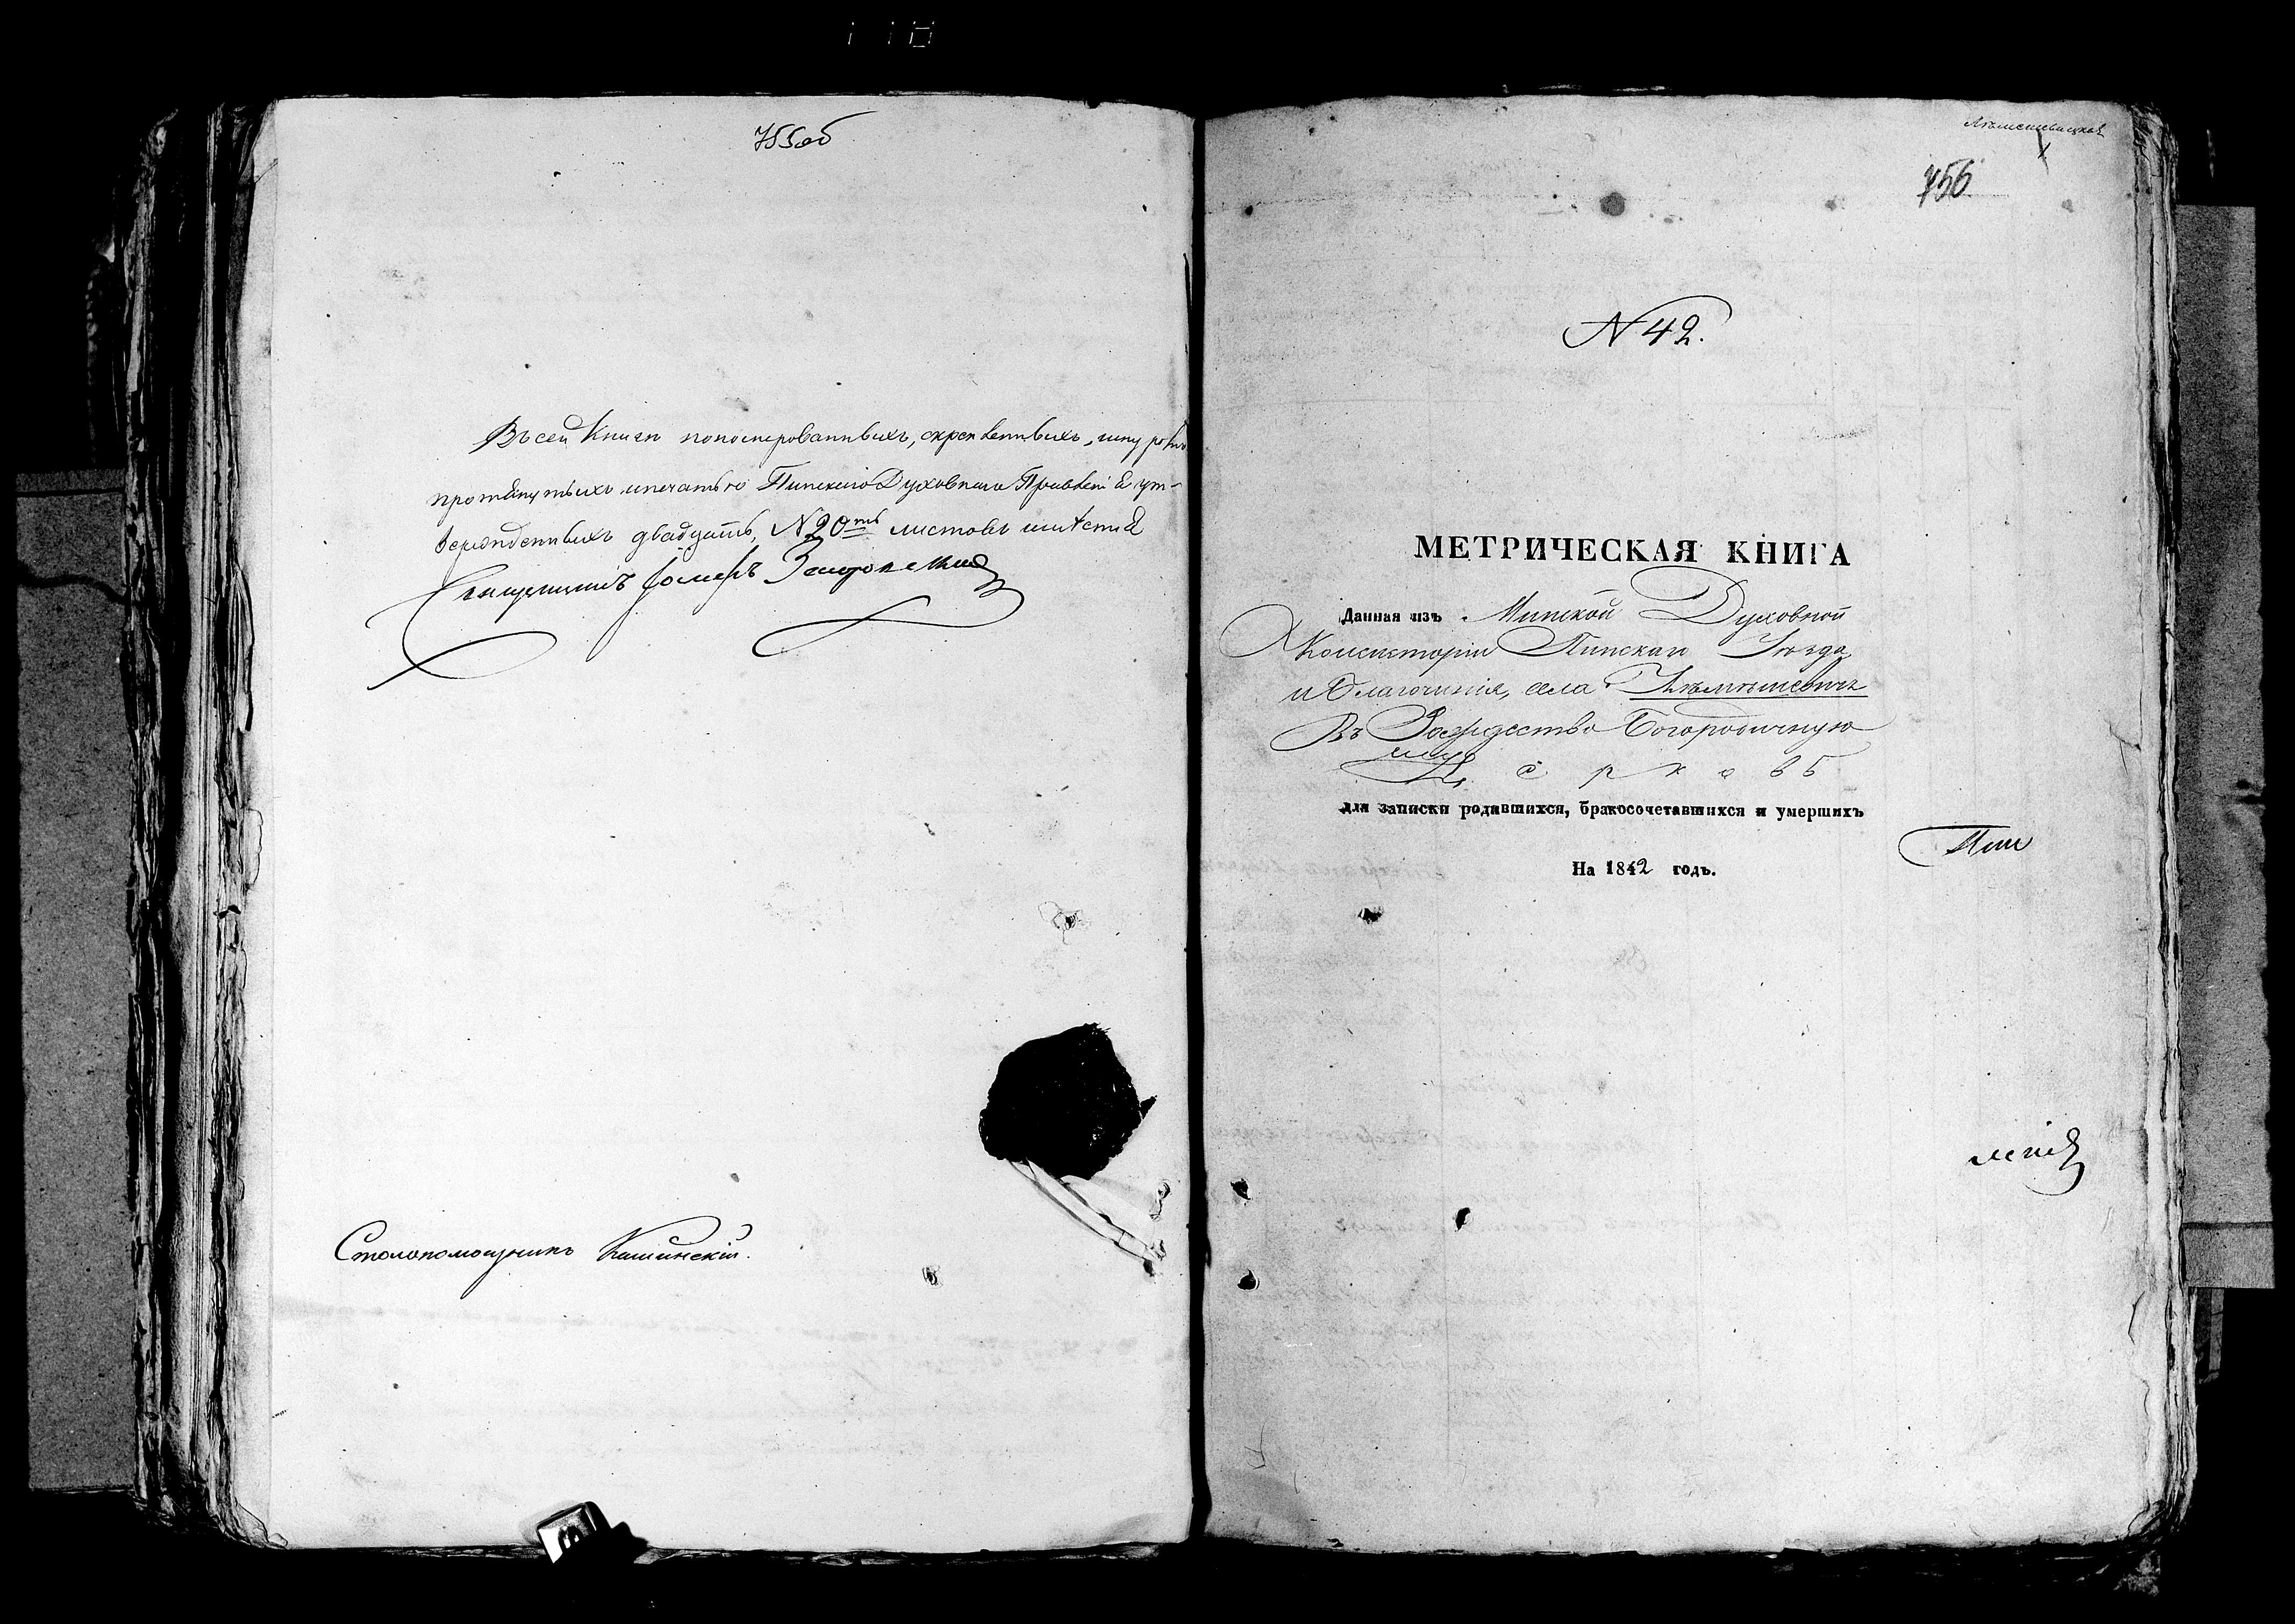 755об
Въ сей Книгѣ пономерованныхъ, скрепленныхъ, шнуромъ
протянутыхъ и печатью Пинскаго Духовнаго Правленія ут-
вержденныхъ двадцать, N 20ть листовъ
Священникъ Іосифъ
Столопомощникъ Кашинскій.
756
N 42.
МЕТРИЧЕСКАЯ КНИГА
Данная изъ Минской Духовной
Консисторіи Пинскаго Уѣзда
и Благочинія, села
Въ Рождество Богородичную
Церковь
для записки родившихся, бракосочетавшихся и умершихъ
На 1842 годъ.